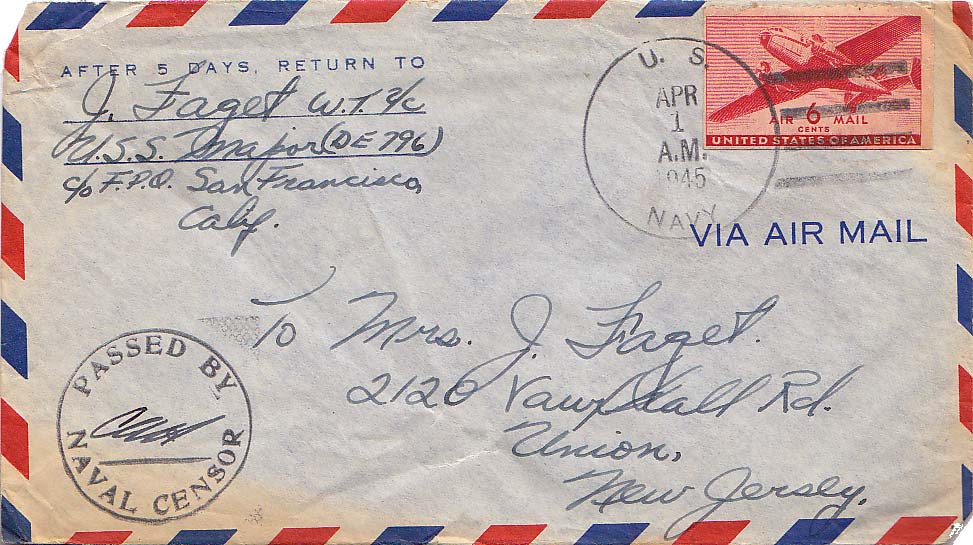 AFTER 5 DAYS, RETURN TO
J. Faget W.T. 3/c
U.S.S. Major (DE 796)
c/o F.P.O. San Francisco,
Calif.
U. S.
APR
1
A.M.
1945
NAVY
AIR 6 MAIL
CENTS
UNITED STATES OF AMERICA
VIA AIR MAIL
To Mrs. J. Faget.
2120 Vauxhall Rd.
Union,
New Jersey.
PASSED BY
NAVAL CENSOR